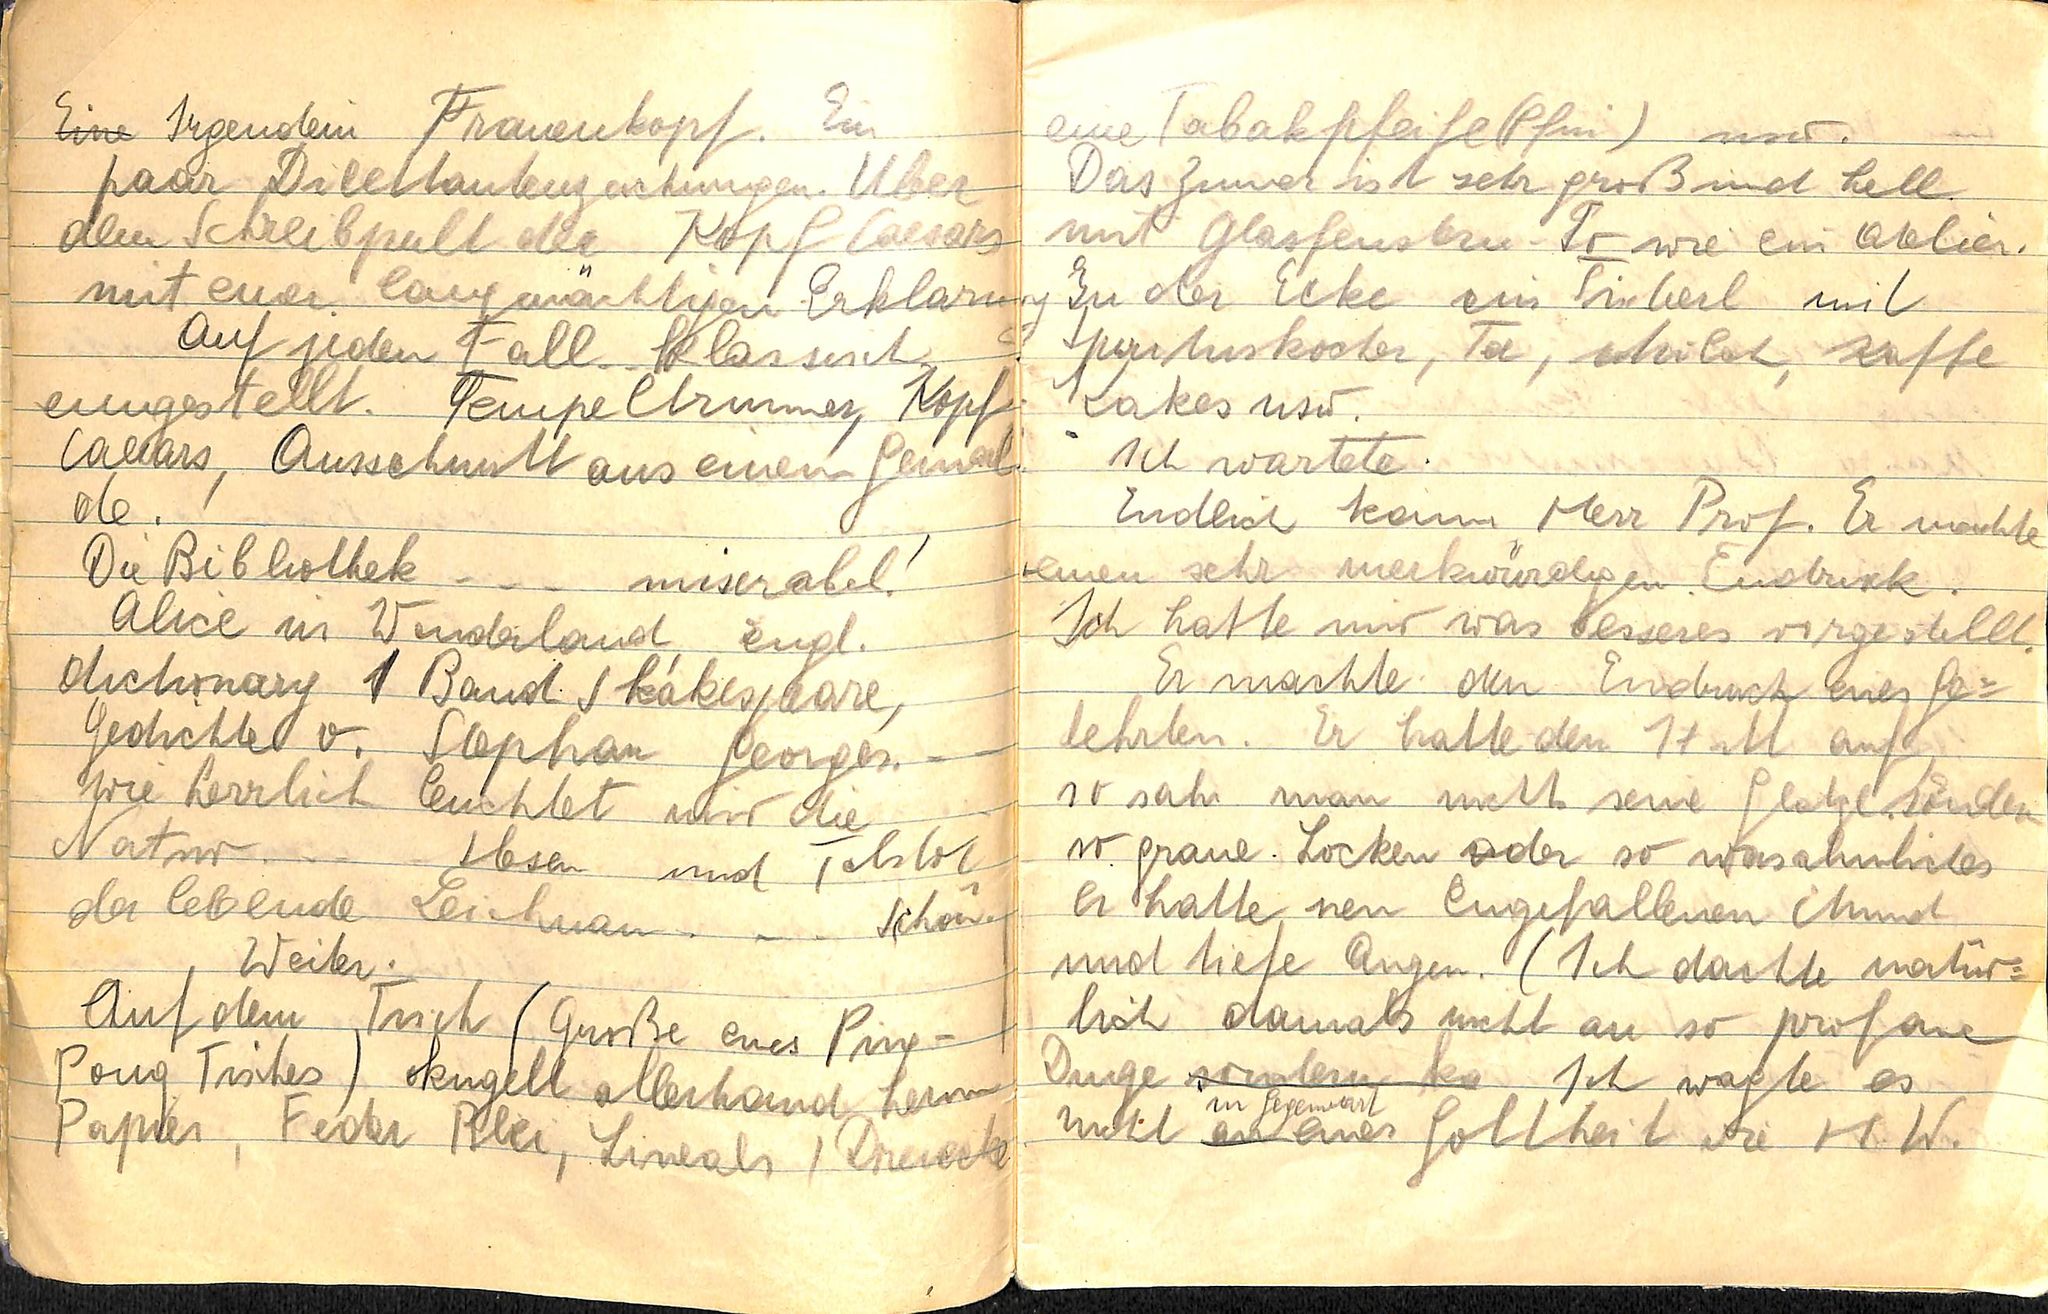 Eine Irgendein Frauenkopf. Ein
paar Dilettantenzeichnungen. Über
dem Schreibpult der Kopf Caesars
mit einer langmächtigen Erklärung
Auf jeden Fall klassisch
eingestellt. Tempeltrümmer, Kopf
Caesars, Ausschnitt aus einem Gemäl
de.
Die Bibliothek - - - miserabel!
Alice in Wonderland, engl.
dictionary 1 Band Shakespeare,
Gedichte v. Stephan Georges. - -
wie herrlich leuchtet mir die
Natur - - - Ibsen und Tolstoi
der lebende Leichnam - - - schön.
Weiter.
Auf dem Tisch (Große eines Ping-
Pong Tisches) kugelt allerhand herum
Papier, Feder Blei, Lineals, Dreiecke
eine Tabakpfeife (Pfui) usw.
Das Zimmer ist sehr groß und hell.
mit Glasfenstern. So wie ein Atelier.
In der Ecke ein Tischerl mit
Spirituskocher, Tee, Milch, Kaffe
Kakes usw.
Ich wartete.
Endlich kam Herr Prof. Er machte
einen sehr merkwürdigen Eindruck.
Ich hatte mir was besseres vorgestellt.
Er machte den Eindruck eines Ge=
lehrten. Er hatte den Hut auf,
so sah man nicht seine Glatze sondern
so graue Locken oder so was ähnliches
Er hatte nen eingefallenen Mund
und tiefe Augen. (Ich dachte natür=
lich damals nicht an so profane
Dinge sondern ka Ich wagte es
nicht an einer in Gegenwart Gottheit wie H. W.